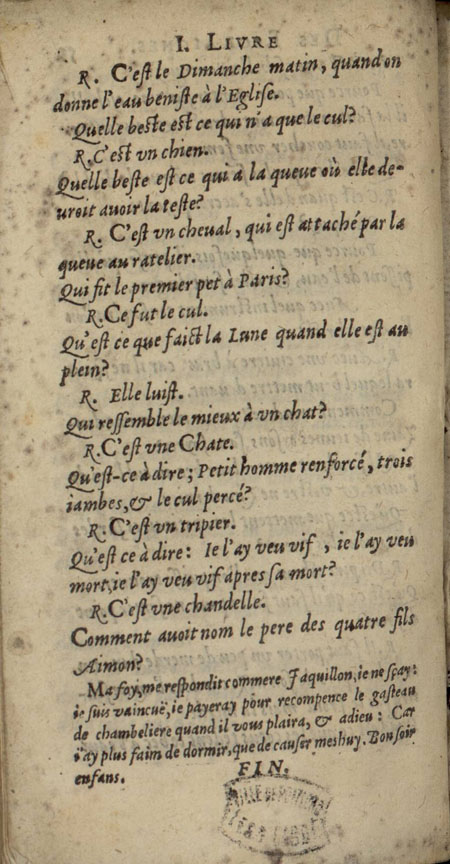 I. LIVRE
R. C'est le Dimanche matin, quand on
donne l'eau beniste à l'Eglise.
Quelle beste est ce qui n'a que le cul?
R. C'est vn chien.
Quelle beste est ce qui a la queue où elle de-
uroit auoir la teste?
R. C'est vn cheual, qui est attaché par la
queue au ratelier.
Qui fit le premier pet à Paris?
R. Ce fut le cul.
Qu'est ce que faict la Lune quand elle est au
plein?
R. Elle luist.
Qui ressemble le mieux à vn chat?
R. C'est vne Chate.
Qu'est-ce à dire; Petit homme renforcé, trois
iambes, & le cul percé?
R. C'est vn tripier.
Qu'est ce à dire: Ie l'ay veu vif, ie l'ay veu
mort, ie l'ay veu vif apres sa mort?
R. C'est vne chandelle.
Comment auoit nom le pere des quatre fils
Aimon?
Ma foy, me respondit commere Iaquillon, ie ne sçay:
ie suis vaincuë, ie payeray pour recompence le gasteau
de chambeliere quand il vous plaira, & adieu: Car
i'ay plus faim de dormir, que de causer meshuy. Bon soir
enfans.
FIN.